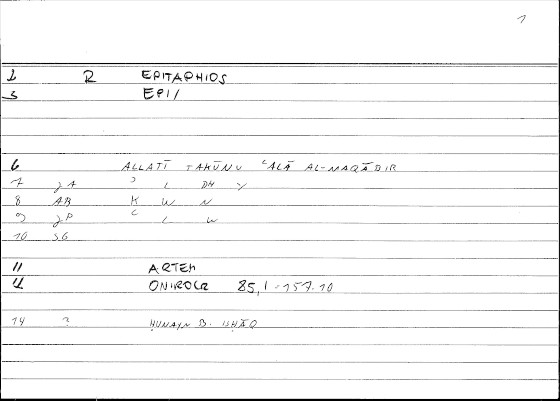 1
2 R EPITAPHIOS
3 EPI/
6 ALLATĪ TAKŪNU ʿALĀ AL-MAQĀBIR
7 ʾ L DH Y
8 AB K W N
9 ʿ L W
10 SG
11 ARTEM
ONIROCR 85,1-157.10
14 ? ḤUNAYN B. ISḤĀQ